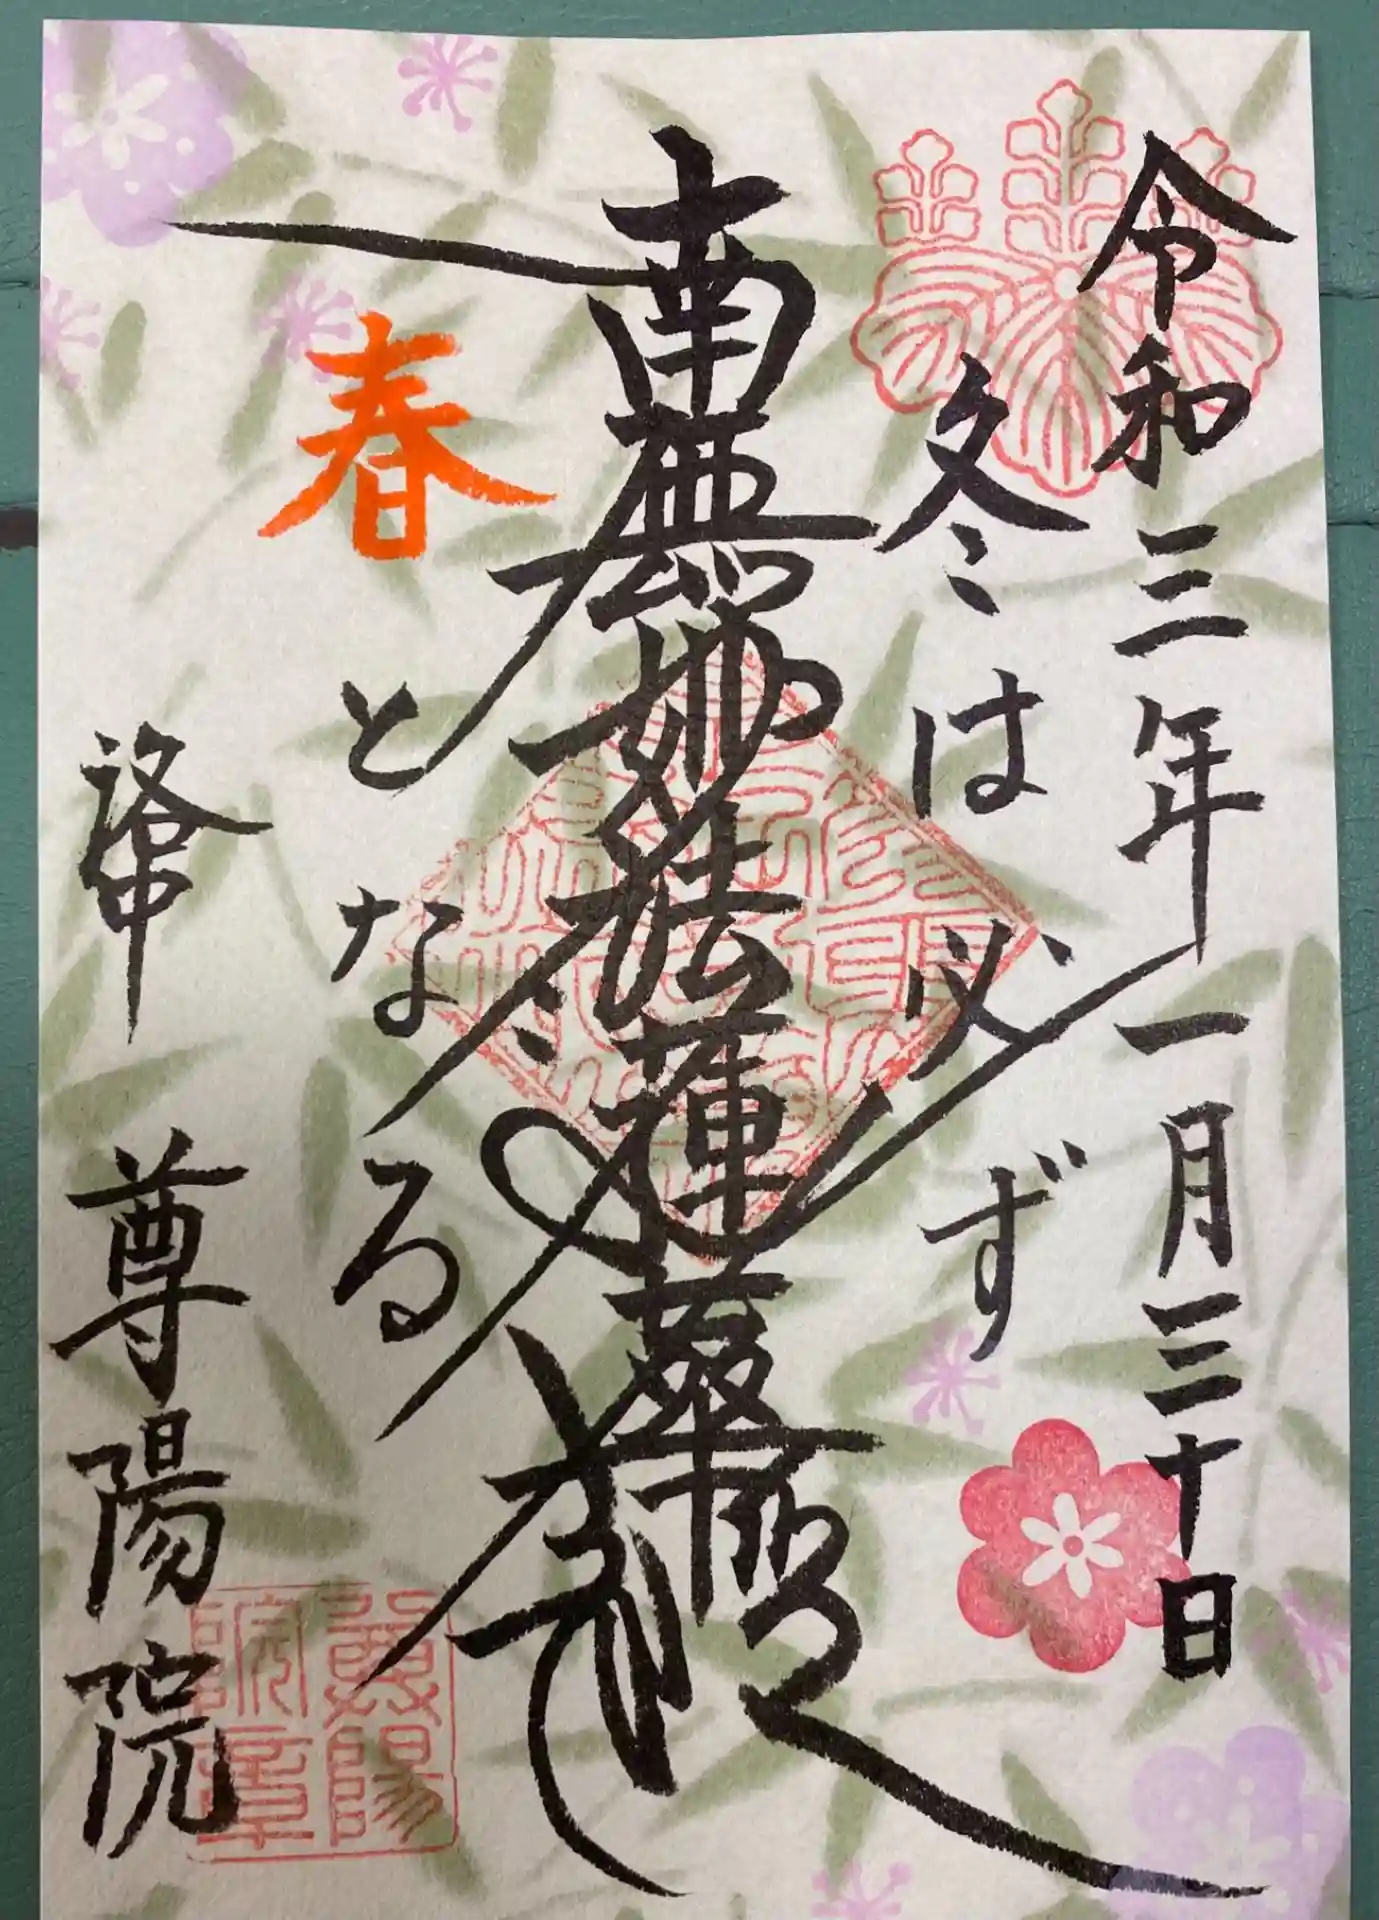 令和三年一月三十日
冬は必ず
南無妙法蓮華経
春となる
洛中 尊陽院
尊陽院章